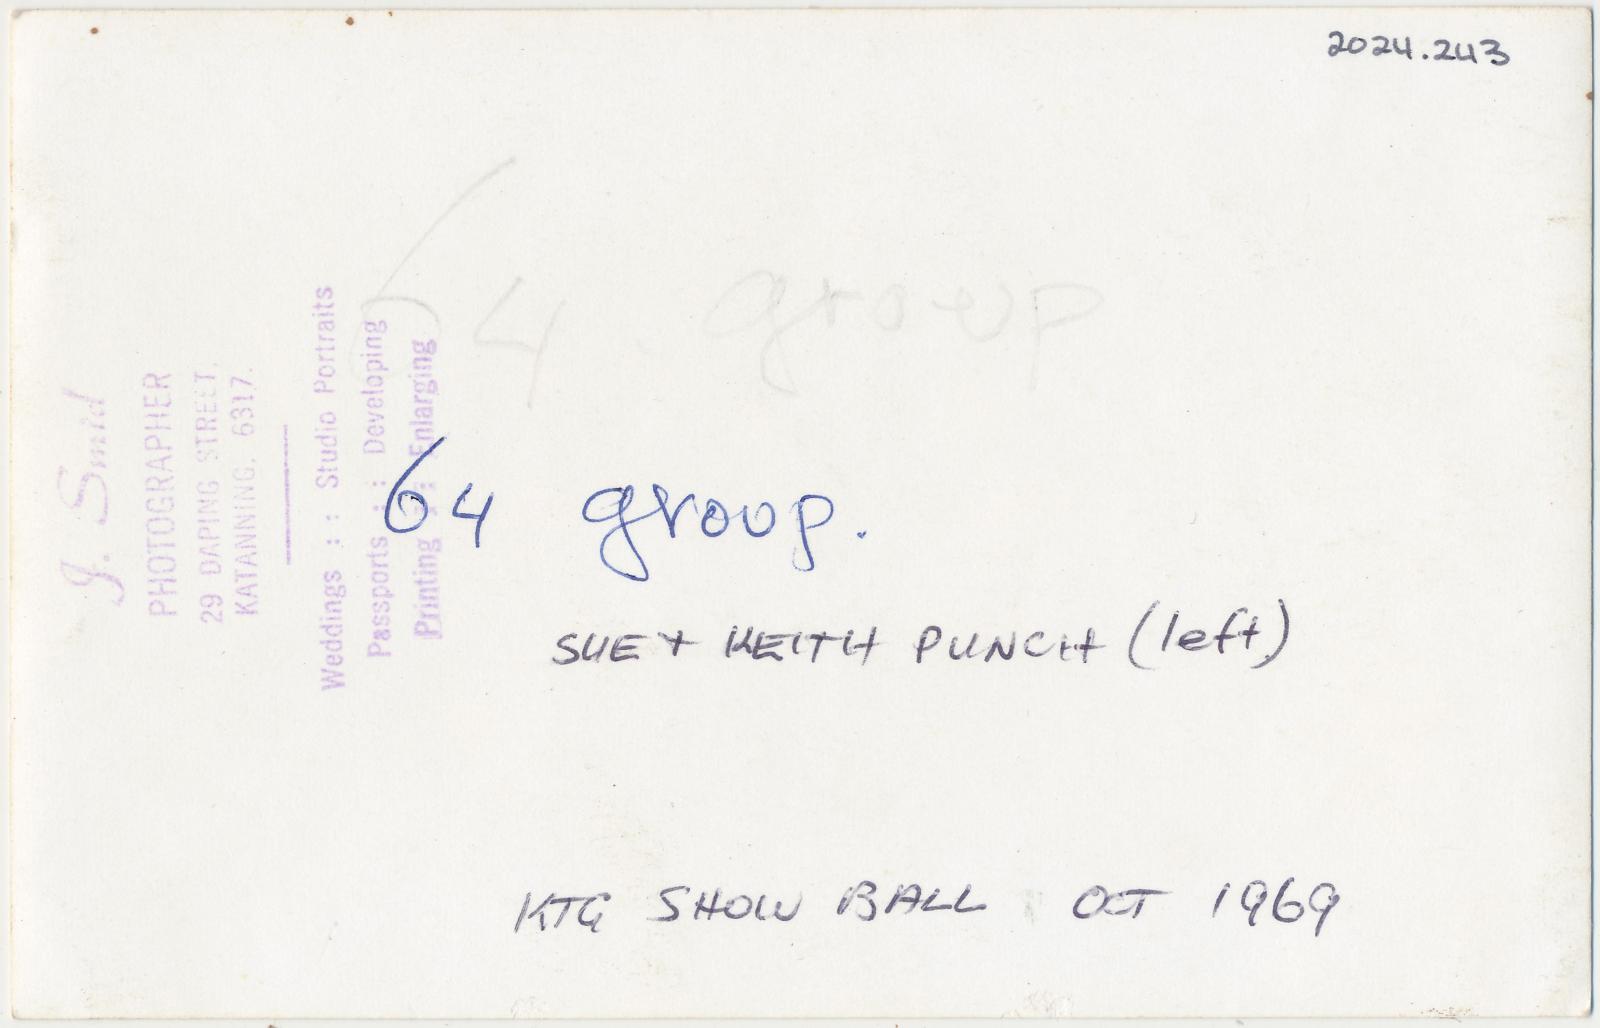 2024.243
64 group
64 group.
SUE + KEITH PUNCH (left)
KTG SHOW BALL OCT 1969
J. Smid
PHOTOGRAPHER
29 DAPING STREET,
KATANNING. 6317.
Weddings : : Studio Portraits
Passports : : Developing
Printing : : Enlarging